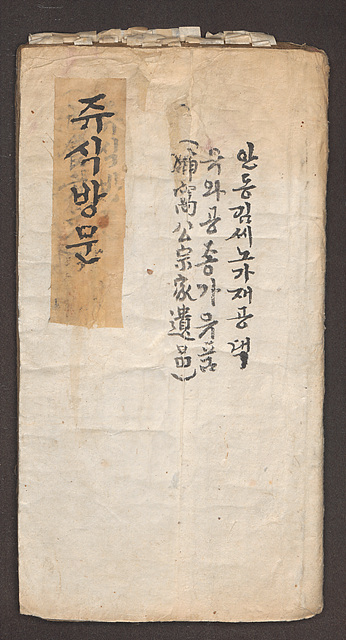 안동김세노가재공댁
유와공종가유품
(猶窩公宗家遺品)
쥬식방문